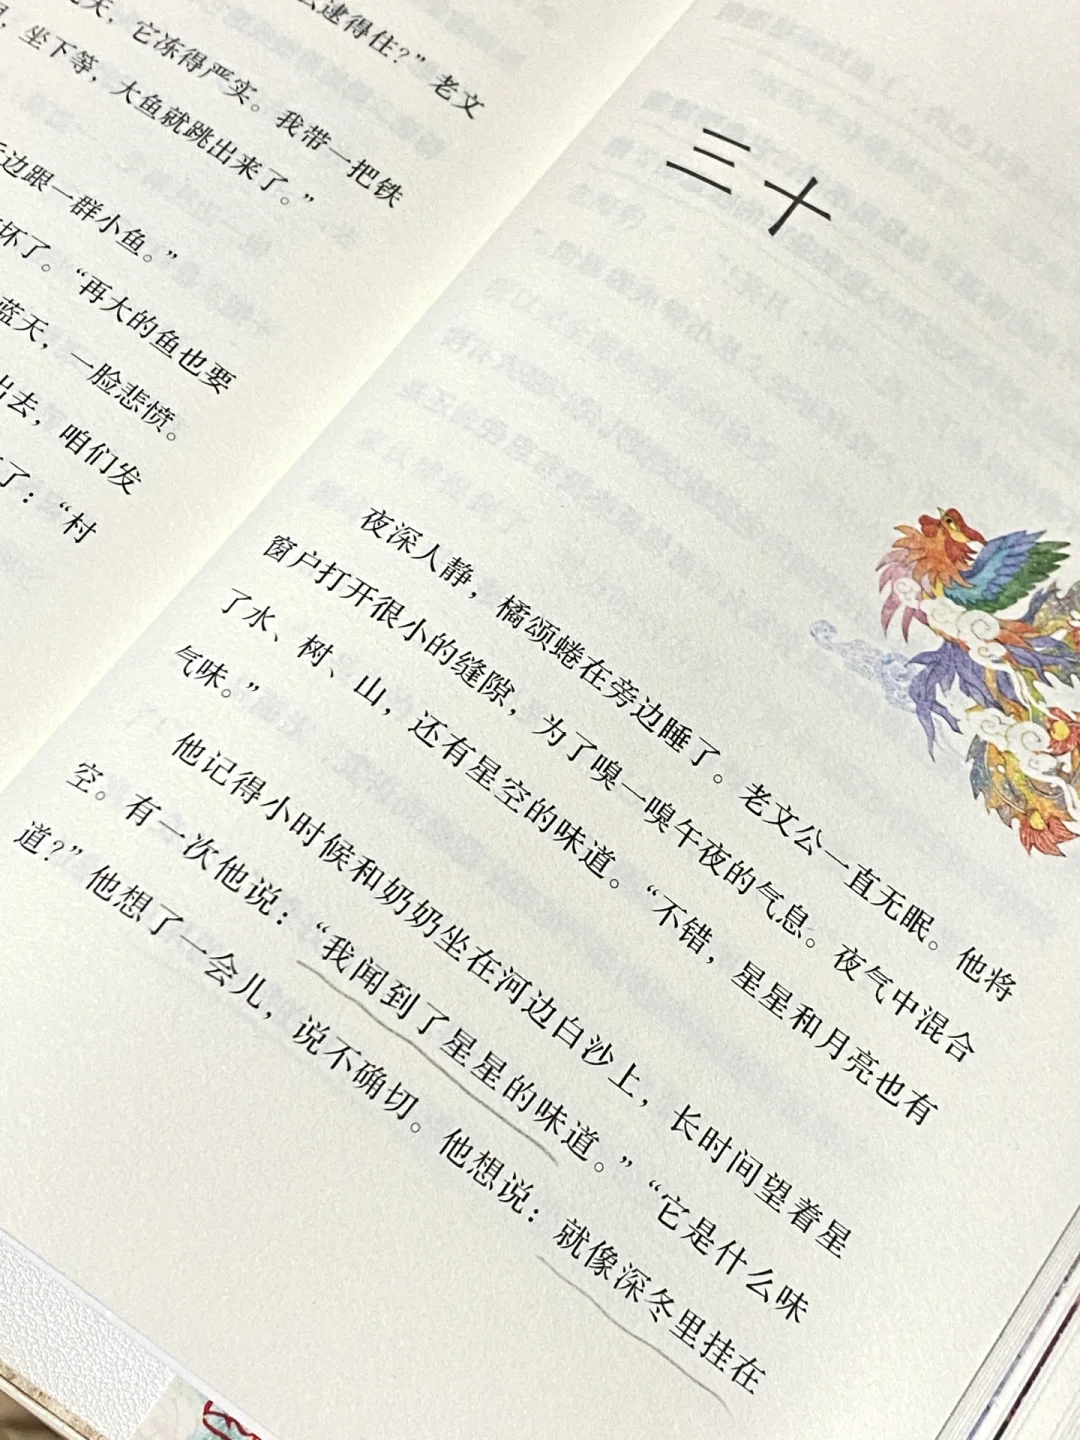 么逮得住？”老文
天，它冻得严实。我带一把铁
坐下等，大鱼就跳出来了。”
边跟一群小鱼。”
坏了。“再大的鱼也要
蓝天，一脸悲愤。
出去，咱们发
了：“村
三十
夜深人静，橘颂蜷在旁边睡了。老文公一直无眠。他将
窗户打开很小的缝隙，为了嗅一嗅午夜的气息。夜气中混合
了水、树、山，还有星空的味道。“不错，星星和月亮也有
气味。”
他记得小时候和奶奶坐在河边白沙上，长时间望着星
空。有一次他说：“我闻到了星星的味道。”“它是什么味
道？”他想了一会儿，说不确切。他想说：就像深冬里挂在